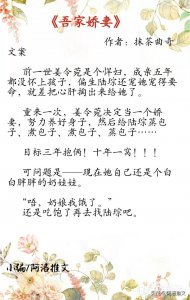 《吾家娇妻》
作者：抹茶曲奇
文案
前一世姜令菀是个悍妇，成亲五年
都没怀上孩子，偏生陆琮还宠她宠得要
命，就差把心肝掏出来给她了。
重来一次，姜令菀决定当一个娇
妻，努力养好身子，然后给陆琮蒸包
子、煮包子、煮包子、蒸包子……
目标三年抱俩！十年一窝！！！
可问题是——现在她自己还是个白
白胖胖的奶娃娃。
“唔，奶娘我饿了。”
还是吃饱了再去找陆琮吧。
小编/阿洛推文